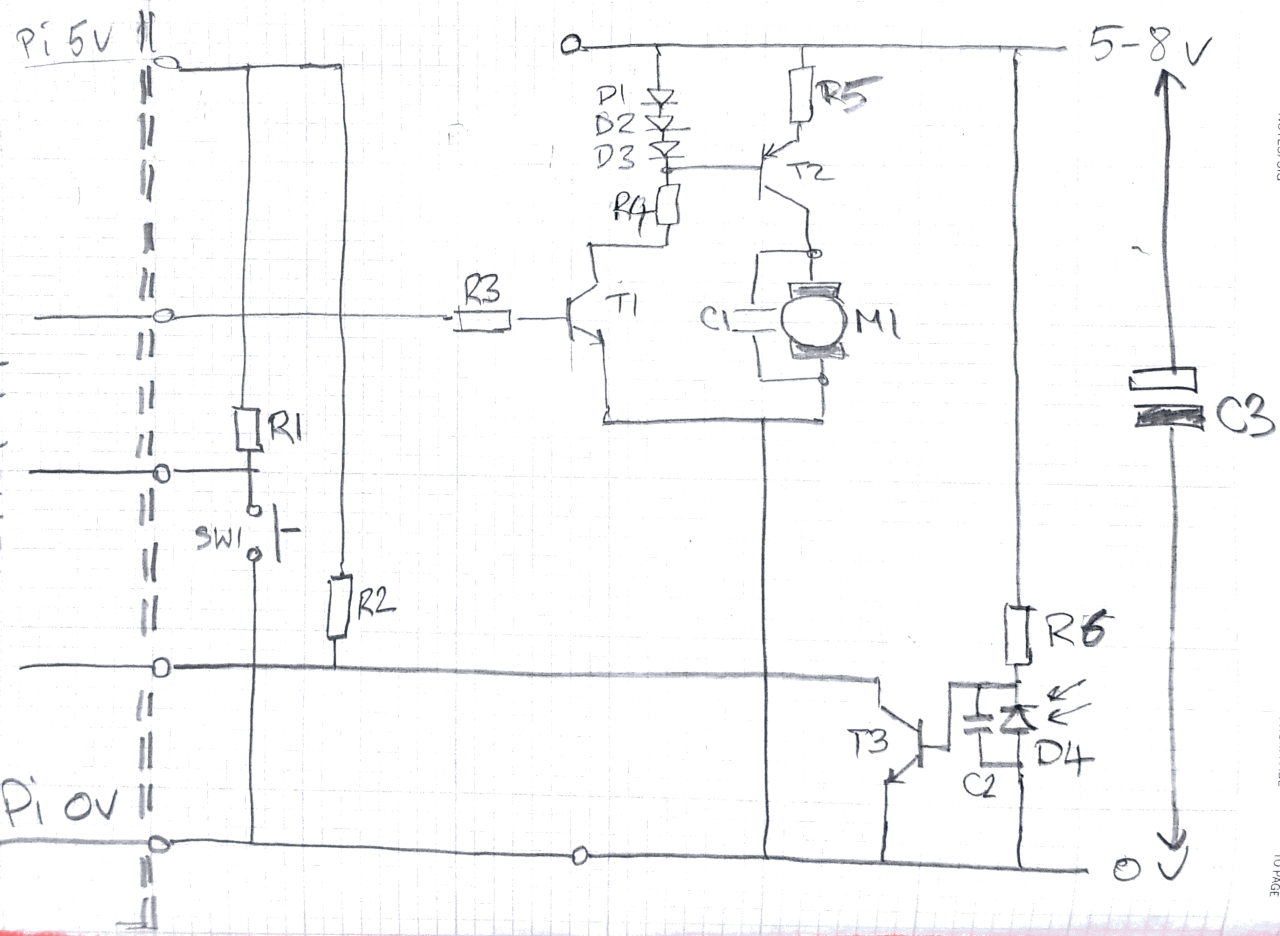 Pi 5V
5-8V
D1
D2
D3
R5
T2
R4
R3
T1
C1
M1
C3
R1
SW1
R2
R6
T3
D4
C2
Pi 0V
0V
TO PAGE